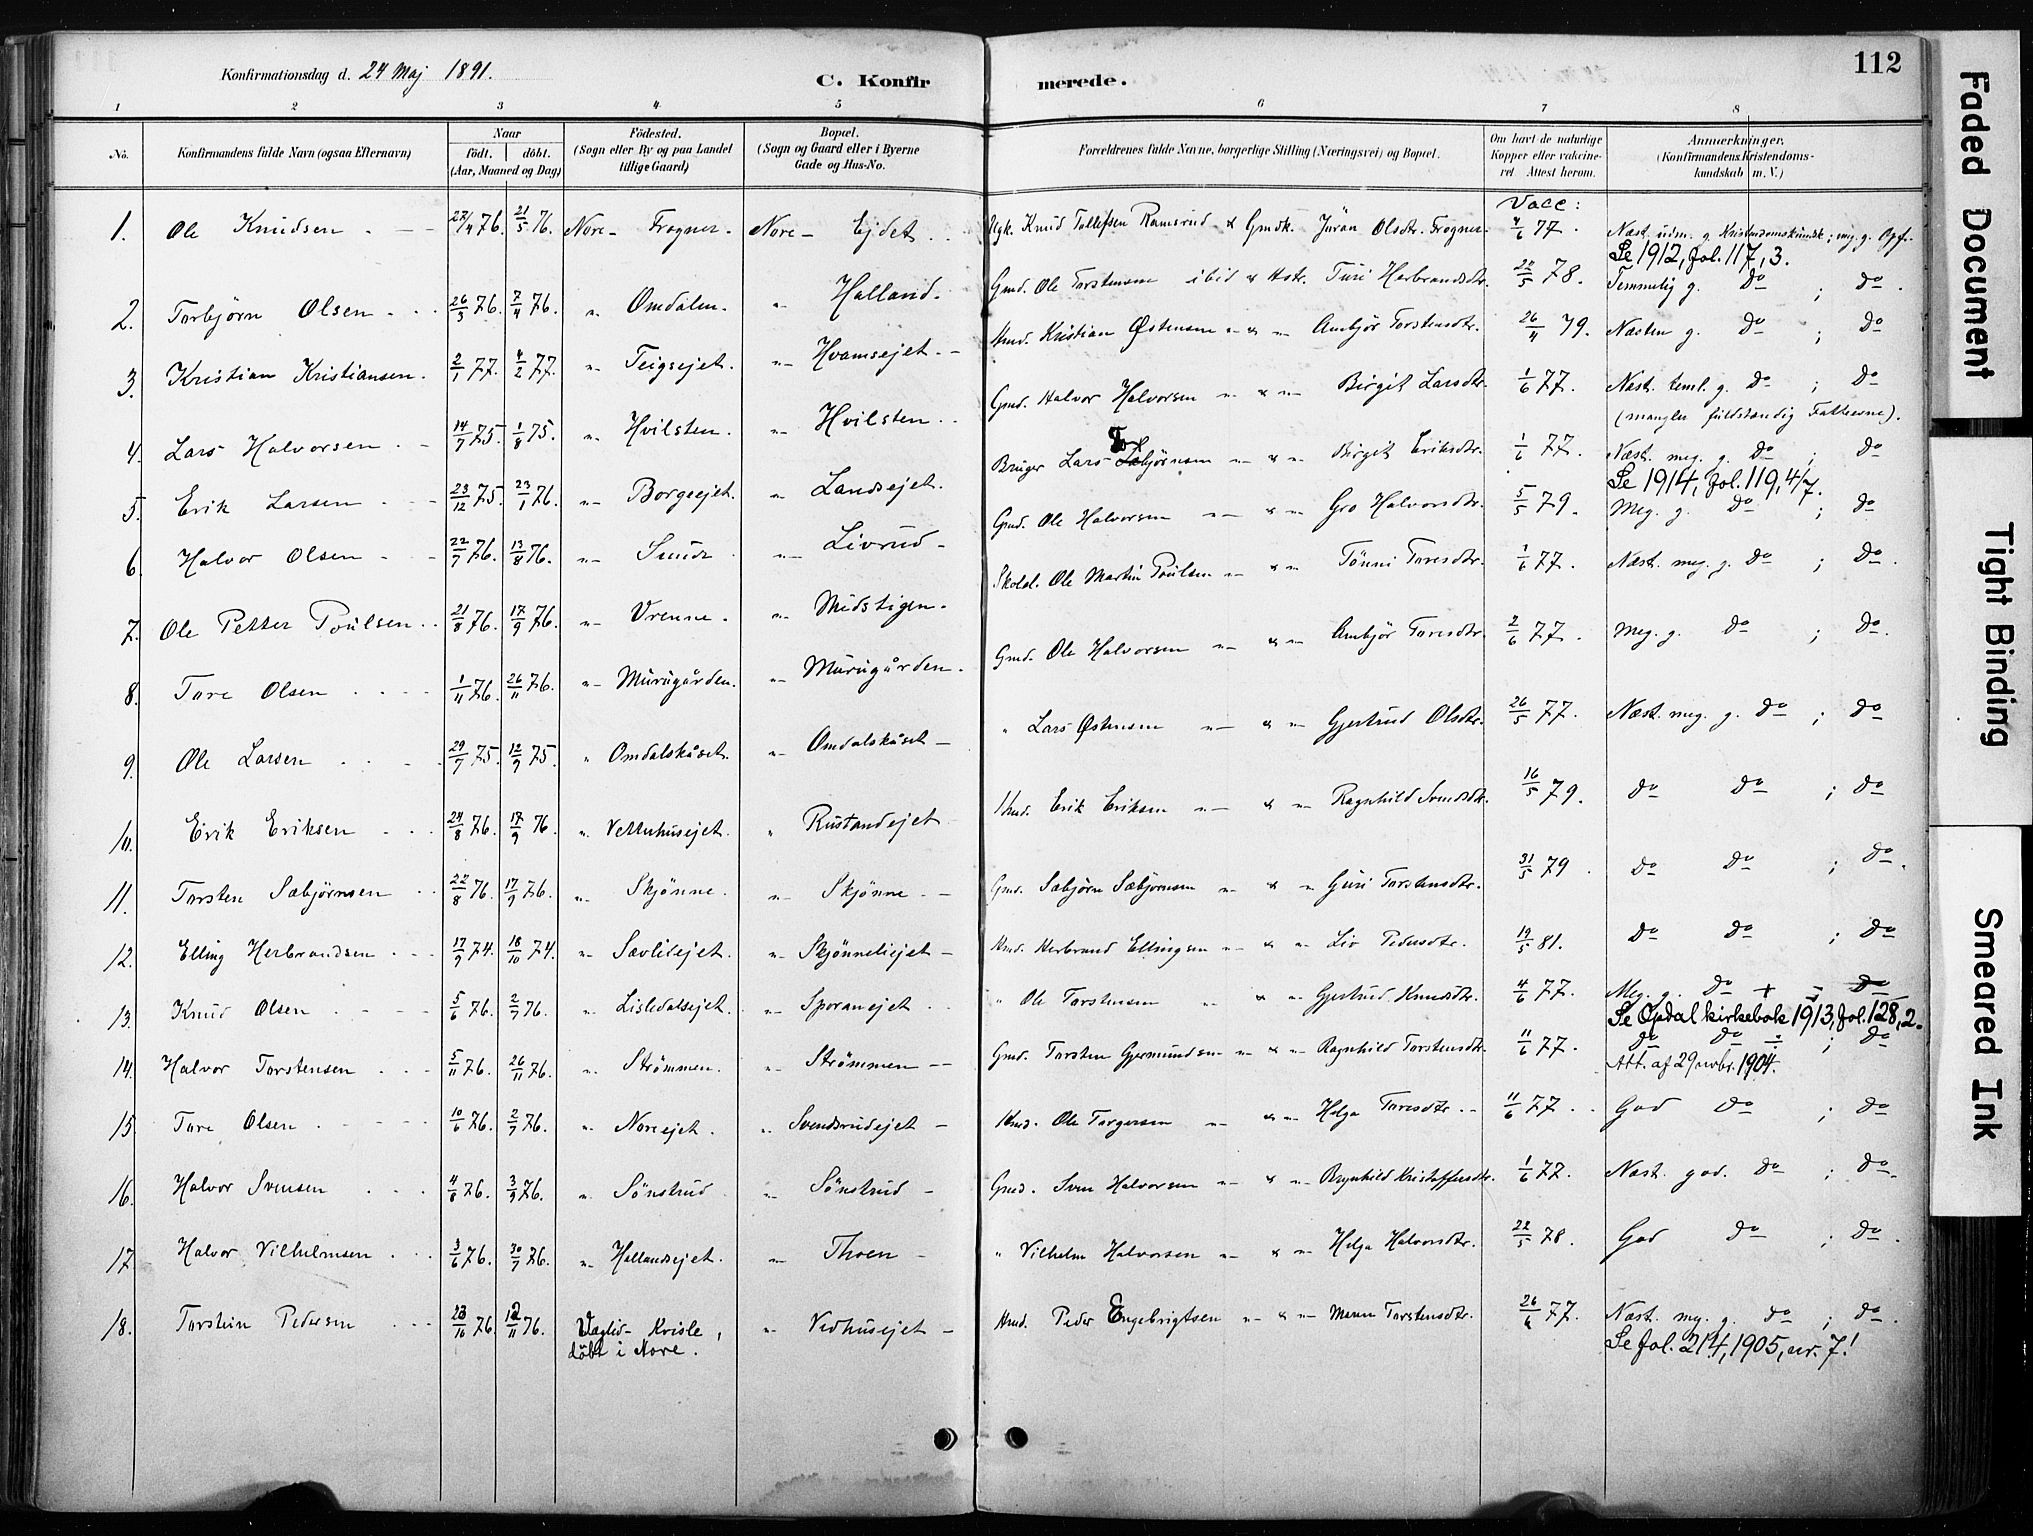 Konfirmationsdag d. 24 Maj 1891.
C. Konfirmerede.
112
1 2 3 4 5 6 7 8
No.
Konfirmandens fulde Navn (ogsaa Efternavn)
Naar
födt. döbt.
(Aar, Maaned og Dag)
Födested.
(Sogn eller By og paa Landet
tillige Gaard)
Bopæl.
(Sogn og Gaard eller i Byerne
Gade og Hus-No.
Forældrenes fulde Navne, borgerlige Stilling (Næringsvei) og Bopæl.
Om havt de naturlige
Kopper eller vakcine-
ret Attest herom.
Anmærkninger,
(Konfirmandens Kristendoms-
kundskab m. V.)
Vacc:
1. Ole Knudsen 27/4 76. 21/5 76. Nore - Frogner. Nore - Ejdet. Ugk. Knud Tollefsen Ramsrud & Gmdk. Jüran Olsdtr. Frogner. 4/6 77. Næst. udm. g. Kristendomskundsk; meg. g. Opf.
Se 1912, fol. 117, 3.
2. Torbjørn Olsen 26/3 76. 7/4 76. " Omdalen. " Halland. Gmd. Ole Torstensen ibid & Hstr. Turi Herbrandsdtr. 22/5 78. Temmelig g. do ; do.
3. Kristian Kristiansen. 2/1 77. 4/2 77. " Teigsejet. " Hvamsejet. Hmd. Kristian Østensen " & " Ambjør Torstensdtr. 26/4 79. Næsten g. do ; do
4. Lars Halvorsen 14/7 75. 1/8 75. " Hvilsten. " Hvilsten. Gmd. Halvor Halvorsen " & " Birgit Larsdtr. 1/6 77. Næst. teml. g. do ; do
(mangler fuldstændig Fatteevne).
5. Erik Larsen 23/12 75. 23/1 76. " Borgeejet. " Landsejet. Bruger Lars Torbjørnsen " & " Birgit Eriksdtr. 1/6 77. Næst. meg. g. do ; do
Se 1914, fol. 119, 4/7.
6. Halvor Olsen 22/7 76. 13/8 76. " Suude " Livrud Gmd. Ole Halvorsen " & " Gro Halvorsdtr. 5/5 79. Meg. g. do ; do
7. Ole Petter Poulsen 21/8 76. 17/9 76. " Vrenne. " Midstigen. Skolel. Ole Martin Poulsen " & " Tönni Toresdtr. 1/6 77. Næst. meg. g. do ; do.
8. Tore Olsen 1/11 76. 26/11 76. " Murugården. " Murugården. Gmd. Ole Halvorsen " & " Ambjör Toresdtr. 2/6 77. Meg. g. do ; do.
9. Ole Larsen 29/7 75. 12/9 75. " Omdalskåset. " Omdalskåset " Lars Østensen " & " Gjertrud Olsdtr. 26/5 77. Næst. meg. g. do ; do
10. Erik Eriksen 24/8 76. 17/9 76. " Vetterhusejet. " Rustandejet Hmd. Erik Eriksen " & " Ragnhild Svendsdtr. 16/5 79. do do ; do
11. Torsten Sæbjørnsen 22/8 76. 17/9 76. " Skjönne. " Skjönne. Gmd. Sæbjørn Sæbjørnsen " & " Guri Torstensdtr. 31/5 79. do do ; do.
12. Elling Herbrandsen 17/9 74. 18/10 74. " Sævliejet. " Skjönneliejet Hmd. Herbrand Ellingsen " & " Liv Pedersdtr. 19/5 81. do do ; do
13. Knud Olsen 5/6 76. 2/7 76. " Lisledalsejet. " Sporanejet. " Ole Torstensen " & " Gjertrud Knudsdtr. 4/6 77. Meg. g. do ; do
Se Opdal kirkebok 1913, fol. 128, 2.
14. Halvor Torstensen 5/11 76. 26/11 76. " Strömmen. " Strömmen Gmd. Torsten Gjermundsen " & " Ragnhild Torstensdtr. 11/6 77. do do ; do
Att. af 29 novbr. 1904.
15. Tore Olsen 10/6 76. 2/7 76. " Noreejet. " Svendsrudejet Hmd. Ole Torgersen " & " Helga Toresdtr. 11/6 77. God do ; do
16. Halvor Svensen 4/8 76. 3/9 76. " Sönstrud " Sönstrud Gmd. Sven Halvorsen " & " Ragnhild Kristoffersdtr. 1/6 77. Næst. god. do ; do.
17. Halvor Vilhelmsen 3/6 76. 30/7 76. " Hallandsejet. " Thoen " Vilhelm Halvorsen " & " Helga Halvorsdtr. 22/5 78. God do ; do.
18. Torstein Pedersen 23/10 76. 12/11 76. Væglid - Kvisle, döbt i Nore. " Vedhusejet Hmd. Peder Engebrigtsen " & " Maren Torstensdtr. 26/6 77. Næst. meg. g. do ; do.
Se fol. 214, 1905, nr. 7!
Faded Document
Tight Binding
Smeared Ink